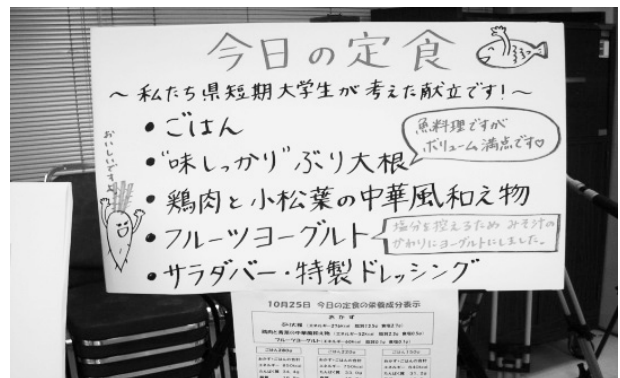 今日の定食
～私たち県短期大学生が考えた献立です!～
おいしいですよ
・ごはん
・"味しっかり"ぶり大根
魚料理ですが
ボリューム満点です♡
・鶏肉と小松葉の中華風和え物
・フルーツヨーグルト
塩分を控えるため みそ汁の
かわりにヨーグルトにしました。
・サラダバー・特製ドレッシング
10月25日 今日の定食の栄養成分表示
おかず
フルーツヨーグルト
ごはん200g
ごはん150g